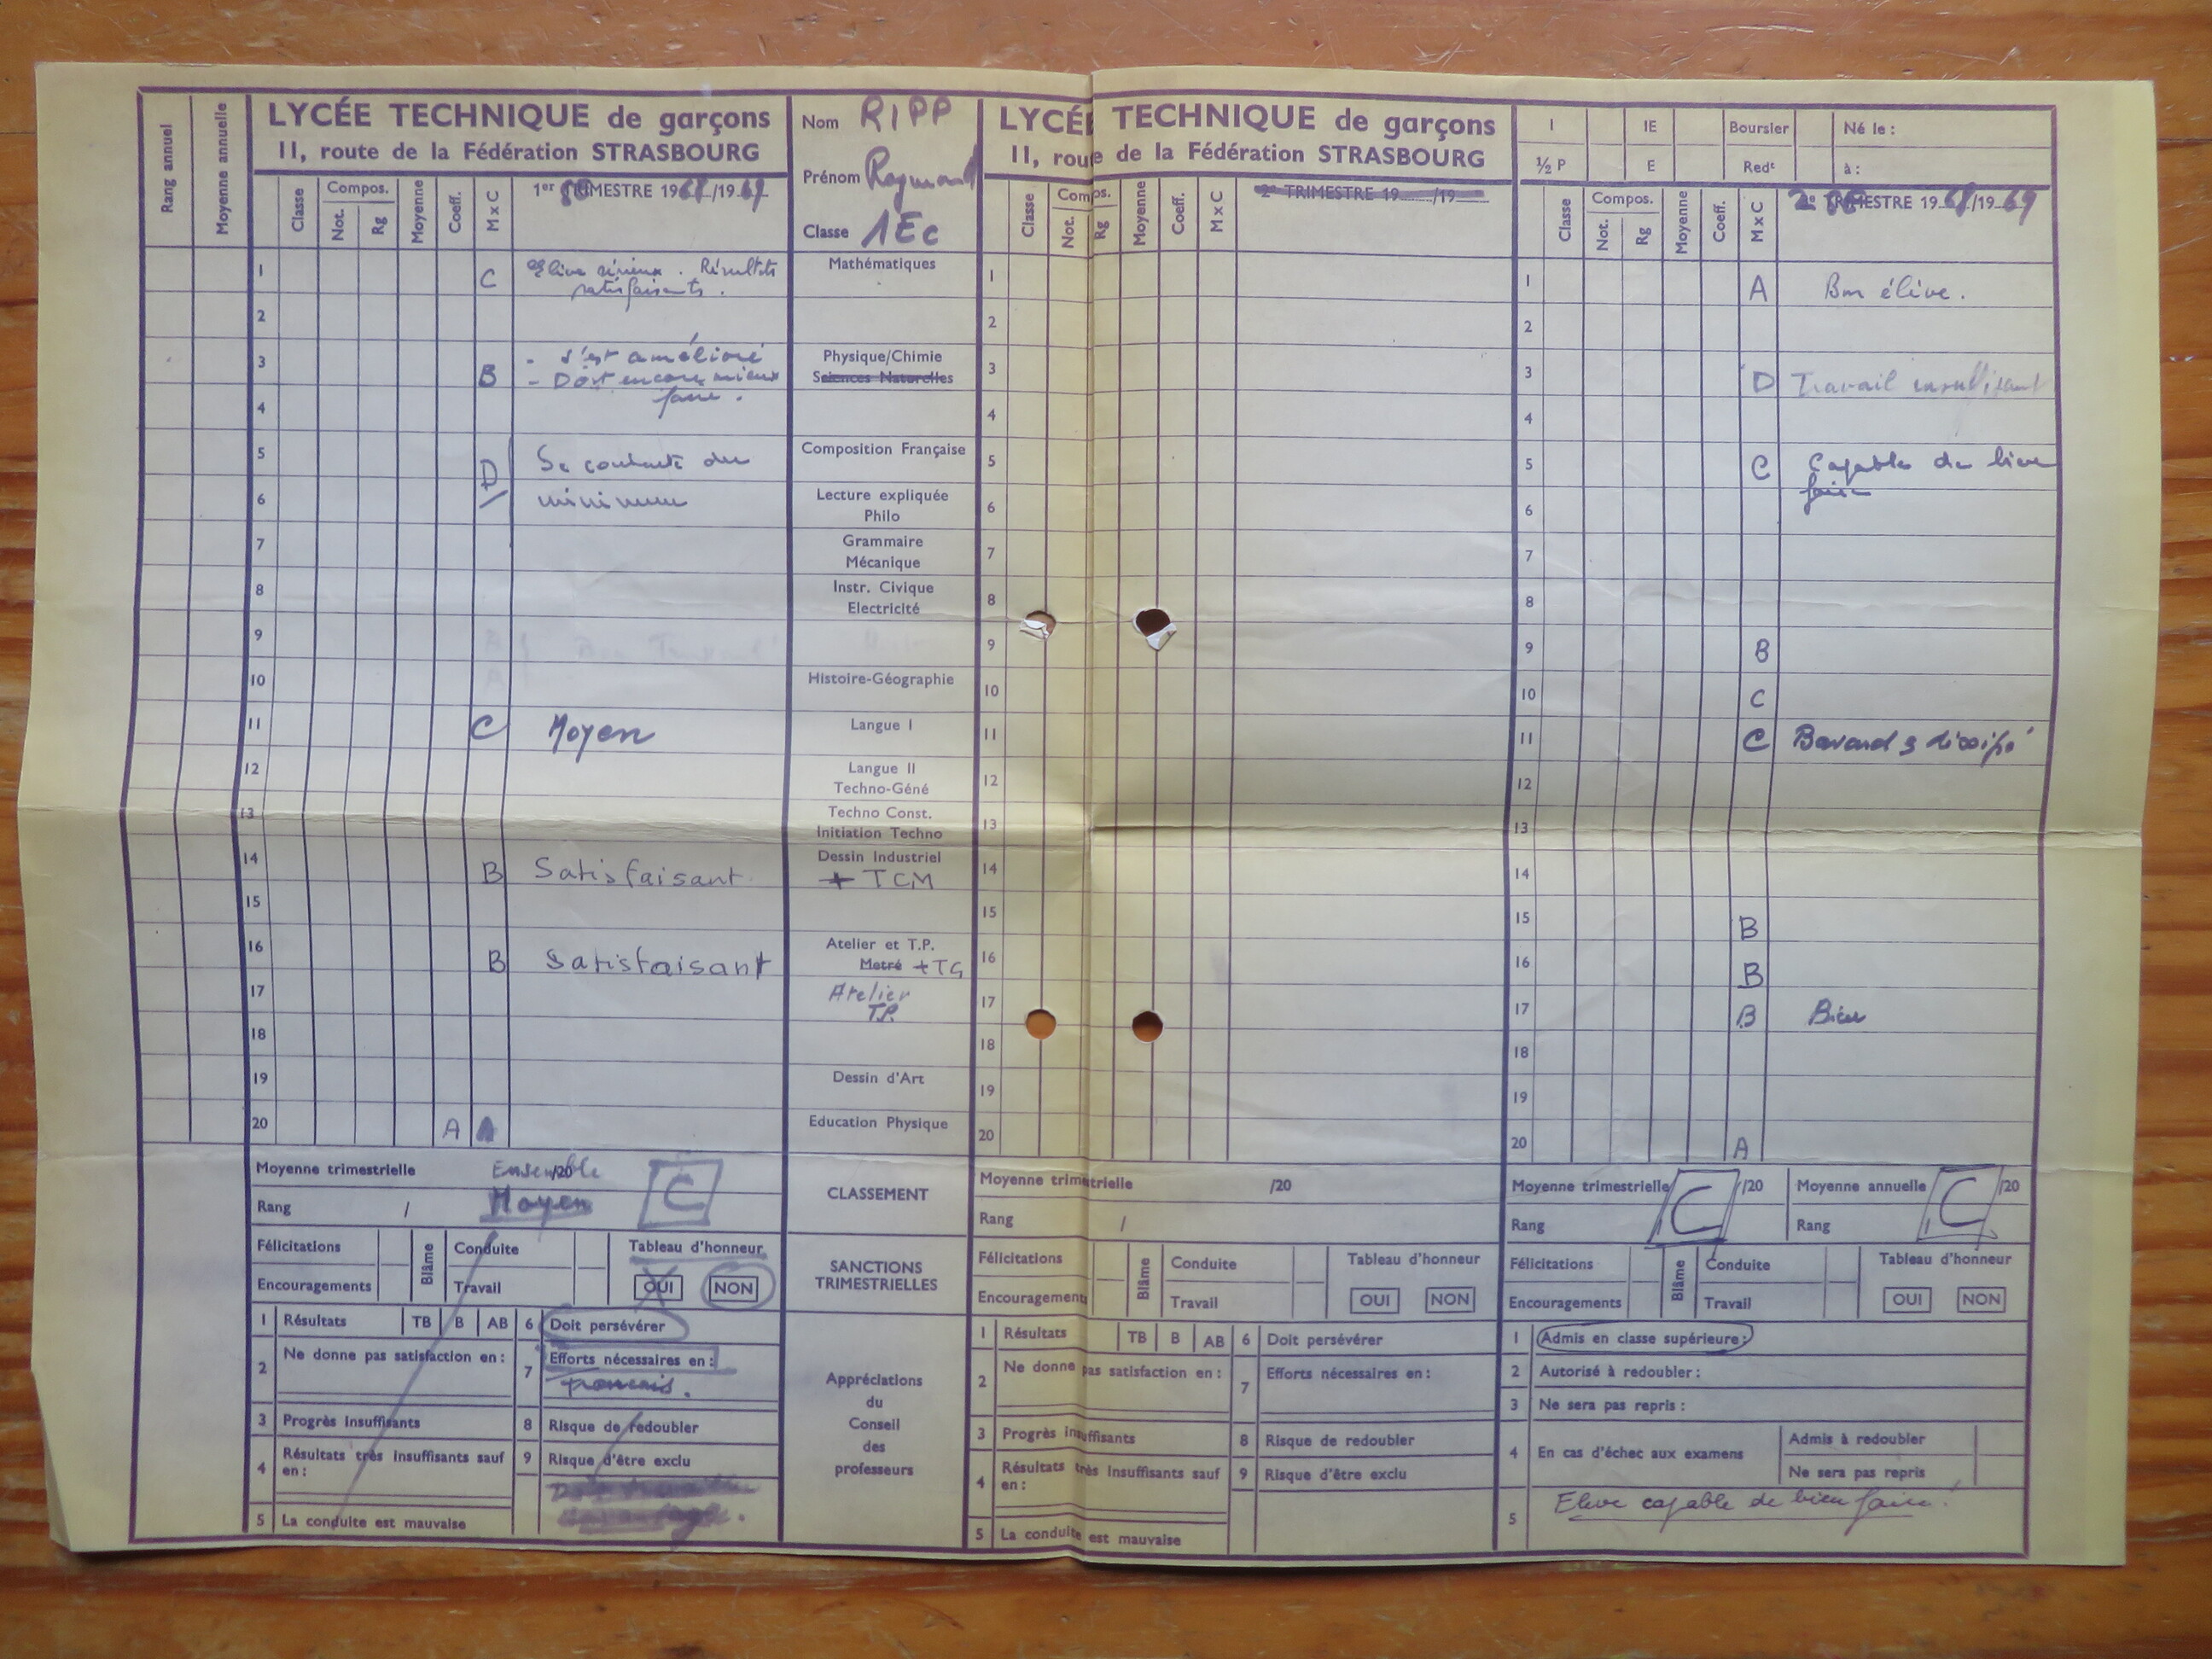 Rang annuel
Moyenne annuelle
LYCÉE TECHNIQUE de garçons
11, route de la Fédération STRASBOURG
Classe
Compos.
Not.
Rg
Moyenne
Coeff.
M x C
1er TRIMESTRE 1968/1969
1 C Elève sérieux. Résultats
satisfaisants.
2
3 B - s'est amélioré
- Doit encore mieux
faire.
4
5 D Se contente du
6 minimum
7
8
9
10
11 C Moyen
12
13
14 B Satisfaisant
15
16 B Satisfaisant
17
18
19
20 A A
Moyenne trimestrielle /20 Ensemble
Moyen C
Rang /
Félicitations
Encouragements
Blâme
Conduite
Travail
Tableau d'honneur
OUI NON
1 Résultats TB B AB
2 Ne donne pas satisfaction en :
3 Progrès insuffisants
4 Résultats très insuffisants sauf
en :
5 La conduite est mauvaise
6 Doit persévérer
7 Efforts nécessaires en :
français.
8 Risque de redoubler
9 Risque d'être exclu
Nom RIPP
Prénom Raymond
Classe 1Ec
Mathématiques
Physique/Chimie
Sciences Naturelles
Composition Française
Lecture expliquée
Philo
Grammaire
Mécanique
Instr. Civique
Electricité
Histoire-Géographie
Langue I
Langue II
Techno-Géné
Techno Const.
Initiation Techno
Dessin Industriel
+ TCM
Atelier et T.P.
Metré + TG
Atelier
T.P.
Dessin d'Art
Education Physique
CLASSEMENT
SANCTIONS
TRIMESTRIELLES
Appréciations
du
Conseil
des
professeurs
LYCÉE TECHNIQUE de garçons
11, route de la Fédération STRASBOURG
Classe
Compos.
Not.
Rg
Moyenne
Coeff.
M x C
2e TRIMESTRE 19 /19
1
2
3
4
5
6
7
8
9
10
11
12
13
14
15
16
17
18
19
20
Moyenne trimestrielle /20
Rang /
Félicitations
Encouragements
Blâme
Conduite
Travail
Tableau d'honneur
OUI NON
1 Résultats TB B AB
2 Ne donne pas satisfaction en :
3 Progrès insuffisants
4 Résultats très insuffisants sauf
en :
5 La conduite est mauvaise
6 Doit persévérer
7 Efforts nécessaires en :
8 Risque de redoubler
9 Risque d'être exclu
I IE Boursier Né le :
½ P E Redt à :
Classe
Compos.
Not.
Rg
Moyenne
Coeff.
M x C
2e TRIMESTRE 1968/1969
1 A Bon élève.
2
3 D Travail insuffisant
4
5 C Capable de bien
faire
6
7
8
9 B
10 C
11 C Bavard & dissipé
12
13
14
15 B
16 B
17 B Bien
18
19
20 A
Moyenne trimestrielle C /20
Rang
Moyenne annuelle C /20
Rang
Félicitations
Encouragements
Blâme
Conduite
Travail
Tableau d'honneur
OUI NON
1 Admis en classe supérieure :
2 Autorisé à redoubler :
3 Ne sera pas repris :
4 En cas d'échec aux examens
Admis à redoubler
Ne sera pas repris
5 Elève capable de bien faire !